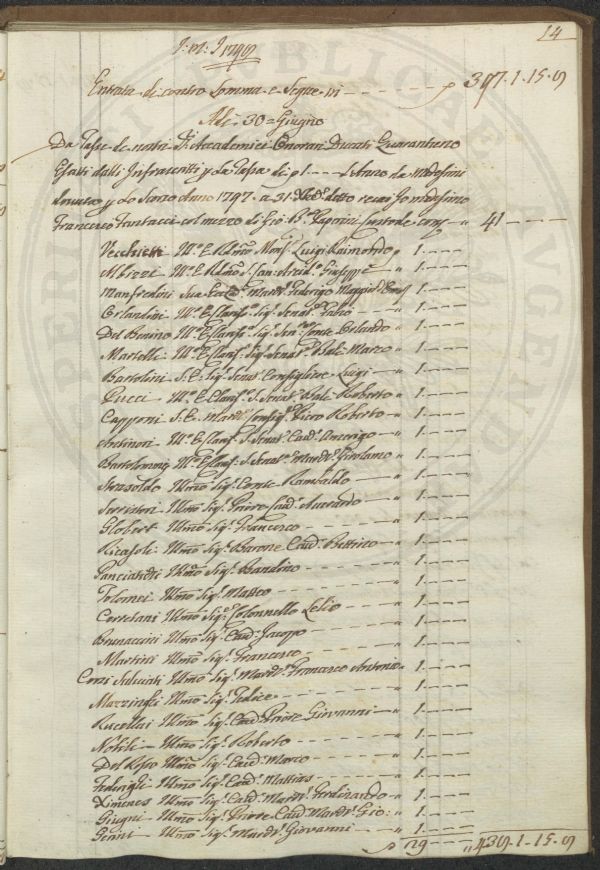 14
J: M: J 1796
Entrata di contro Somma e Segue in — — — — — — 397.1.15.9
Adì 30 = Giugno
Da Tasse de nostri SS.i Accademici Onorari Ducati Quarantuno
Esatti dalli Infrascritti p la Tassa di p.1 — L'Anno da Medesimi
p lo Scorso Anno 1797 a 31
Francesco Fantacci col mezzo di Gio: B.a — 41 — — —
Vecchietti M.o E Ill.mo Mons.r Luigi Raimondo „ 1.— —
Albizi M.o E Ill.mo S. Can: Arcid.o Giuseppe „ 1.— —
Manfredini Sua Ecc.a March.e Federigo Maggior. „ 1.— —
Orlandini M.o E Clariss.o Sig.r Senat.e Fabio — „ 1.— —
Del Benino M.o E Clariss.o Sig.r Sen.re Conte Orlando „ 1.— —
Martelli M.o E Clariss.o Sig.r Senat.e Balì Marco „ 1.— —
Bartolini S.E. Sig.r Senat. Consigliere Luigi — „ 1.— —
Pucci M.o E Clariss.o S. Senat.e Balì Roberto „ 1.— —
Capponi S.E. March.e Consig.e Piero Roberto „ 1.— —
Antinori M.o E Clariss.o S. Senat.e Cav.e Amerigo — „ 1.— —
Bartolommei M.o E Clariss.o S. Senat.e March.e Girolamo „ 1.— —
Strasoldo Ill.mo Sig.r Conte Rambaldo — „ 1.— —
Serristori Ill.mo Sig.r Priore Cav.e Averardo — „ 1.— —
Glöbert Ill.mo Sig.r Francesco — — — „ 1.— —
Ricasoli Ill.mo Sig.r Barone Cav.e Bettino — „ 1.— —
Panciatichi Ill.mo Sig.r Bandino — — — „ 1.— —
Tolomei Ill.mo Sig.r Matteo — — — „ 1.— —
Cerretani Ill.mo Sig.r Colonnello Lelio — — „ 1.— —
Brunaccini Ill.mo Sig.r Cav.e Jacopo — — „ 1.— —
Martini Ill.mo Sig.r Francesco — — — „ 1.— —
Corsi Salviati Ill.mo Sig.r March.e Francesco Antonio „ 1.— —
Marzinghi Ill.mo Sig.r Felice — — — „ 1.— —
Rucellai Ill.mo Sig.r Cav.e Priore Giovanni — „ 1.— —
Nobili — Ill.mo Sig.r Roberto — — — „ 1.— —
Del Rosso Ill.mo Sig.r Cav.e Marco — — „ 1.— —
Federighi Ill.mo Sig.r Cav.e Mattias — — „ 1.— —
Ximenes Ill.mo Sig.r Cav.e March.e Ferdinando — „ 1.— —
Giugni Ill.mo Sig.r Priore Cav.e March.e Gio: „ 1.— —
Ginni — Ill.mo Sig.r March.e Giovanni — „ 1.— —
29 — — „ 439.1.15.9